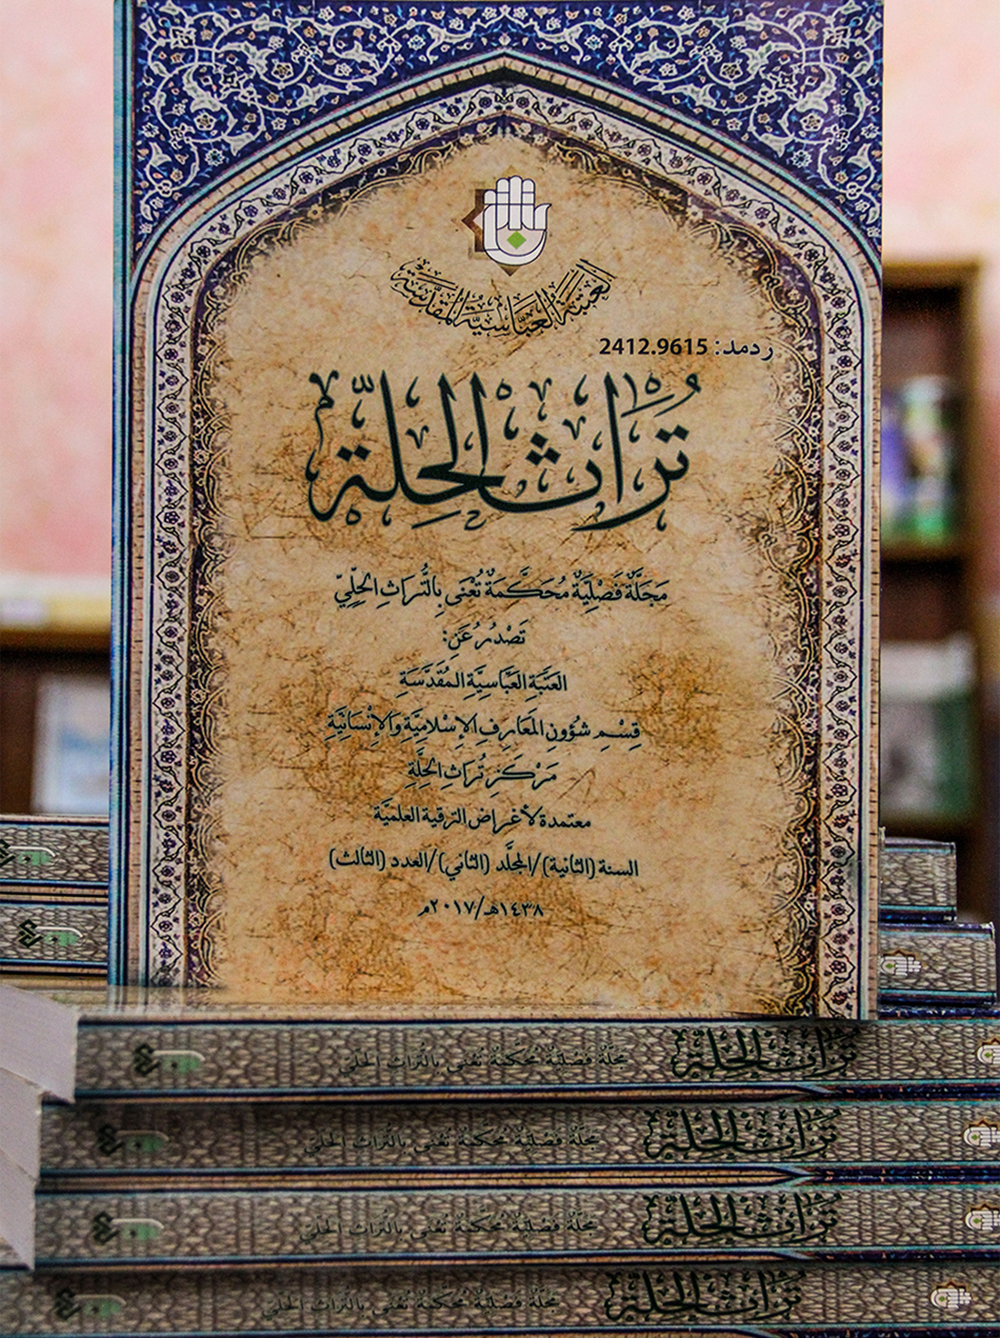 العتبة العباسية المقدسة
ردمد: 2412.9615
تُرَاثُ الحِلّة
مَجَلَّةٌ فَصْلِيَّةٌ مُحَكَّمَةٌ تُعْنَى بِالتُّرَاثِ الحِلِّيّ
تَصْدُرُ عَن:
العَتَبَةِ العَبَّاسِيَّةِ المُقَدَّسَةِ
قِسْمِ شُؤُونِ المَعَارِفِ الإِسْلامِيَّةِ وَالإِنْسَانِيَّةِ
مَرْكَزِ تُرَاثِ الحِلَّةِ
معتمدة لأغراض الترقية العلميَّة
السنة (الثانية)/المجلَّد (الثاني)/العدد (الثالث)
١٤٣٨هـ/٢٠١٧م
تُرَاثُ الحِلّة مَجَلَّةٌ فَصْلِيَّةٌ مُحَكَّمَةٌ تُعْنَى بِالتُّرَاثِ الحِلِّيّ
تُرَاثُ الحِلّة مَجَلَّةٌ فَصْلِيَّةٌ مُحَكَّمَةٌ تُعْنَى بِالتُّرَاثِ الحِلِّيّ
تُرَاثُ الحِلّة مَجَلَّةٌ فَصْلِيَّةٌ مُحَكَّمَةٌ تُعْنَى بِالتُّرَاثِ الحِلِّيّ
تُرَاثُ الحِلّة مَجَلَّةٌ فَصْلِيَّةٌ مُحَكَّمَةٌ تُعْنَى بِالتُّرَاثِ الحِلِّيّ